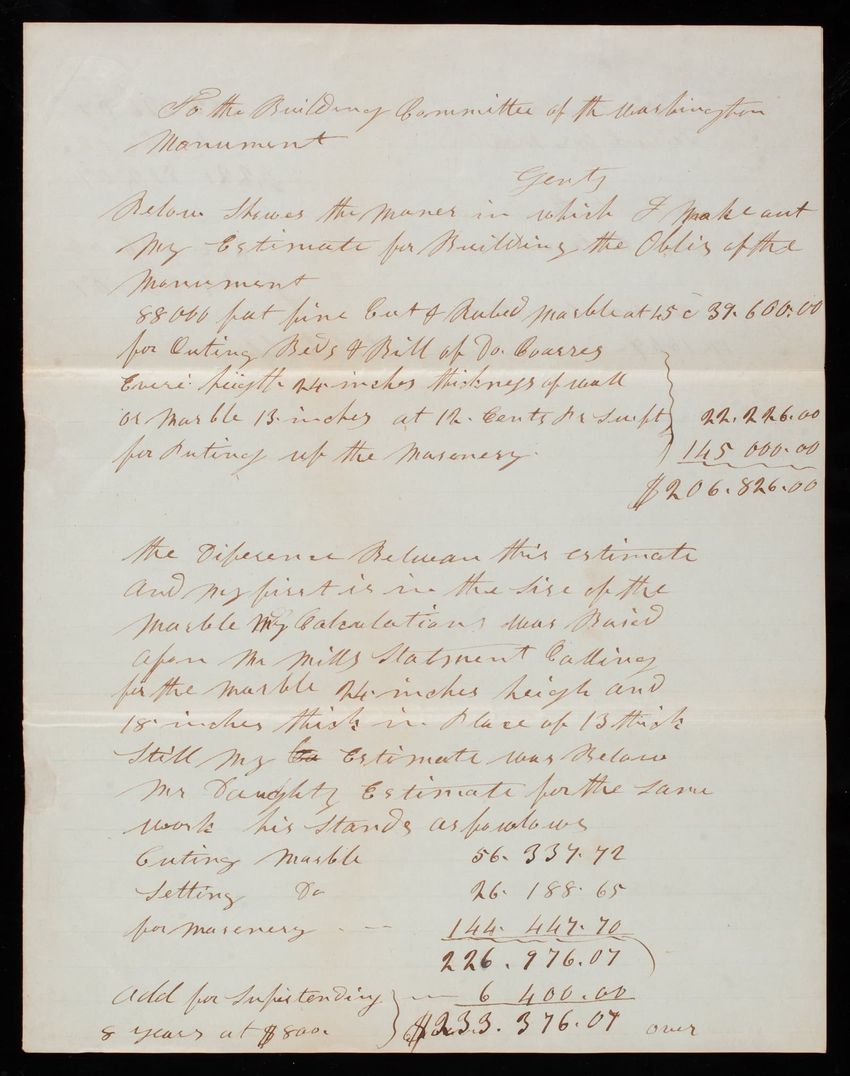 To the Building Committee of th Washington
Monument
Gents
Below Showes the Maner in which I make out
My Estimate for Building the Oblis of the
Monument
88000 feet fine Cut & Rubed Marble at 45 c 39.600.00
for Cuting Beds & Bill of Do. Coarses
Evere heigth 24 inches thickness of wall
or Marble 13 inches at 12. Cents Pr Suft 22.226.00
for Puting up the Masonery. 145 000.00
$206.826.00
the Diference Betwean this estimate
And My first is in the Sise of the
Marble My Calculations was Baised
apon Mr Mills Statment Calling
for the Marble 24 inches heigh and
18 inches thick in Place of 13 thick
Still My Estimate was Below
Mr Daughty Estimate for the Same
work his Stands as fowlows
Cuting Marble 56.337.72
Setting Do 26.188.65
for Masonery 144.447.70
226.976.07
Add for Supistending 6 400.00
8 Years at $800. $233.376.07 over